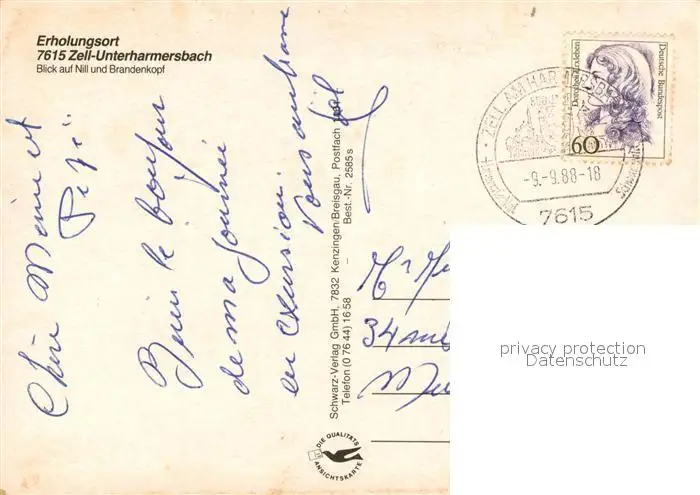 Erholungsort
7615 Zell-Unterharmersbach
Blick auf Nill und Brandenkopf
Chère Mémé et
Pépé
Bien le bonjour
de ma journée
en excursion.
Vous embrasse
Schwarz-Verlag GmbH, 7832 Kenzingen-Breisgau, Postfach
Telefon (0 76 44) 16 58 — Best.-Nr. 2585 s
DIE QUALITÄTS
ANSICHTSKARTE
Deutsche Bundespost
60
ZELL AM HARMERSBACH
-9.-9.88-18
7615
Mr
34
privacy protection
Datenschutz